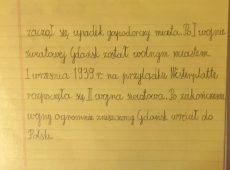 zaczął się upadek gospodarczy miasta. Po I wojnie
światowej Gdańsk został wolnym miastem
1 września 1939 r. na przylądku Westerplatte
rozpoczęła się II wojna światowa. Po zakończeniu
wojny ogromnie zniszczony Gdańsk wrócił do
Polski.